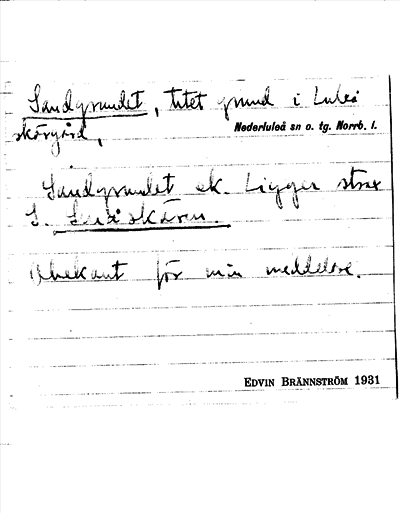 Sandgrundet, litet grund i Luleå
skärgård, Nederluleå sn o. tg. Norrb. l.
Sandgrundet ek. Ligger strax
S.
Obekant för min meddelare.
EDVIN BRÄNNSTRÖM 1931